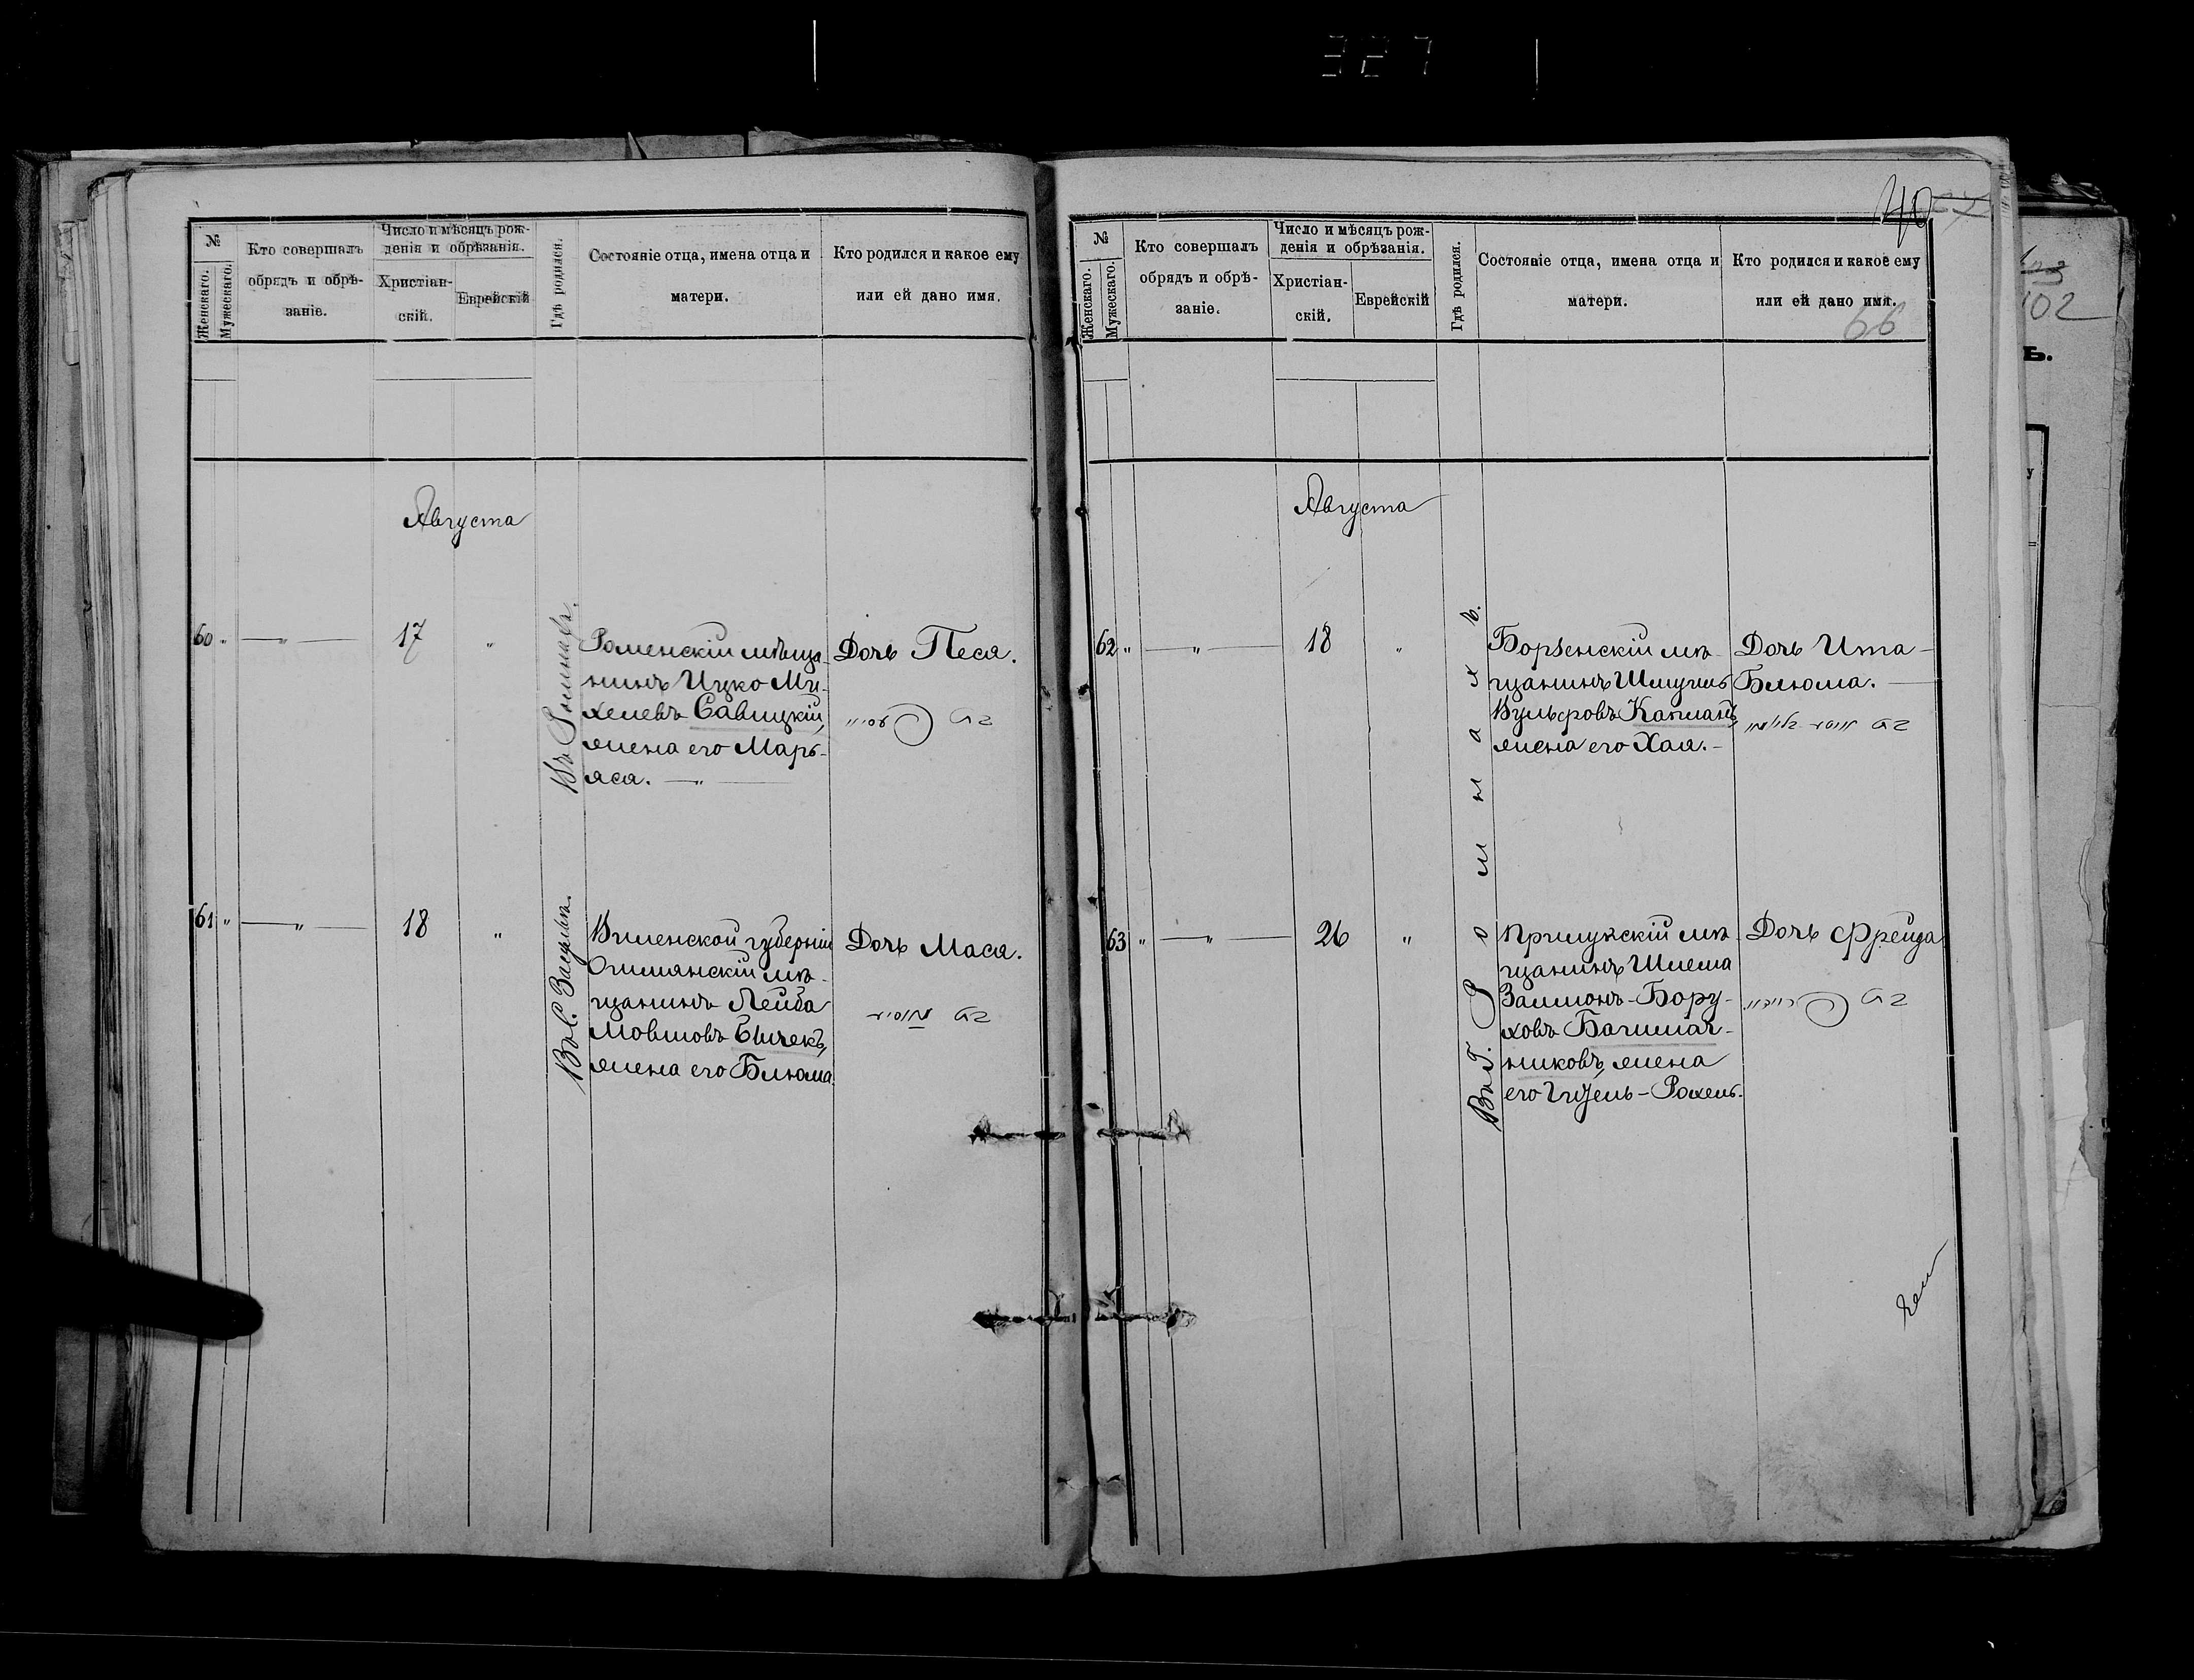 327
40
66
102
№
Женскаго.
Мужескаго.
Кто совершалъ
обрядъ и обрѣ-
заніе.
Число и мѣсяцъ рож-
денія и обрѣзанія.
Христіан-
скій.
Еврейскій
Гдѣ родился.
Состояніе отца, имена отца и
матери.
Кто родился и какое ему
или ей дано имя.
Августа
60 " — " — 17 "
Въ Ромнахъ.
Роменскій мѣща-
нинъ Ицко Ми-
хелевъ Савицкій,
жена его Марь-
яся. — " —
Дочь Песя.
בת
61 " — " — 18 "
Въ С.
Виленской губерніи
Ошмянскій мѣ-
щанинъ Лейба
Мовшовъ
жена его Блюма.
Дочь Мася.
בת
№
Женскаго.
Мужескаго.
Кто совершалъ
обрядъ и обрѣ-
заніе.
Число и мѣсяцъ рож-
денія и обрѣзанія.
Христіан-
скій.
Еврейскій
Гдѣ родился.
Состояніе отца, имена отца и
матери.
Кто родился и какое ему
или ей дано имя.
Августа
Въ Г. Ромнахъ.
62 " — " — 18 "
Борзенскій мѣ-
щанинъ Шмуилъ
Вульфовъ Капланъ,
жена его Хая. —
Дочь Ита —
Блюма. —
בת
63 " — " — 26 "
Прилукскій мѣ-
щанинъ Шлема
Залмонъ-Бору-
ховъ Бачимач-
никовъ, жена
его Гитель-Рохель.
Дочь Фрейда
בת